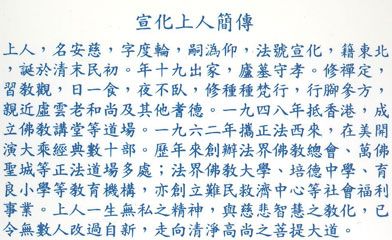 宣化上人簡傳
上人，名安慈，字度輪，嗣溈仰，法號宣化，籍東北
，誕於清末民初。年十九出家，廬墓守孝。修禪定，
習教觀，日一食，夜不臥，修種種梵行，行腳參方，
親近虛雲老和尚及其他耆德。一九四八年抵香港，成
立佛教講堂等道場。一九六二年攜正法西來，在美開
演大乘經典數十部。歷年來創辦法界佛教總會、萬佛
聖城等正法道場多處；法界佛教大學、培德中學、育
良小學等教育機構，亦創立難民救濟中心等社會福利
事業。上人一生無私之精神，與慈悲智慧之教化，已
令無數人改過自新，走向清淨高尚之菩提大道。